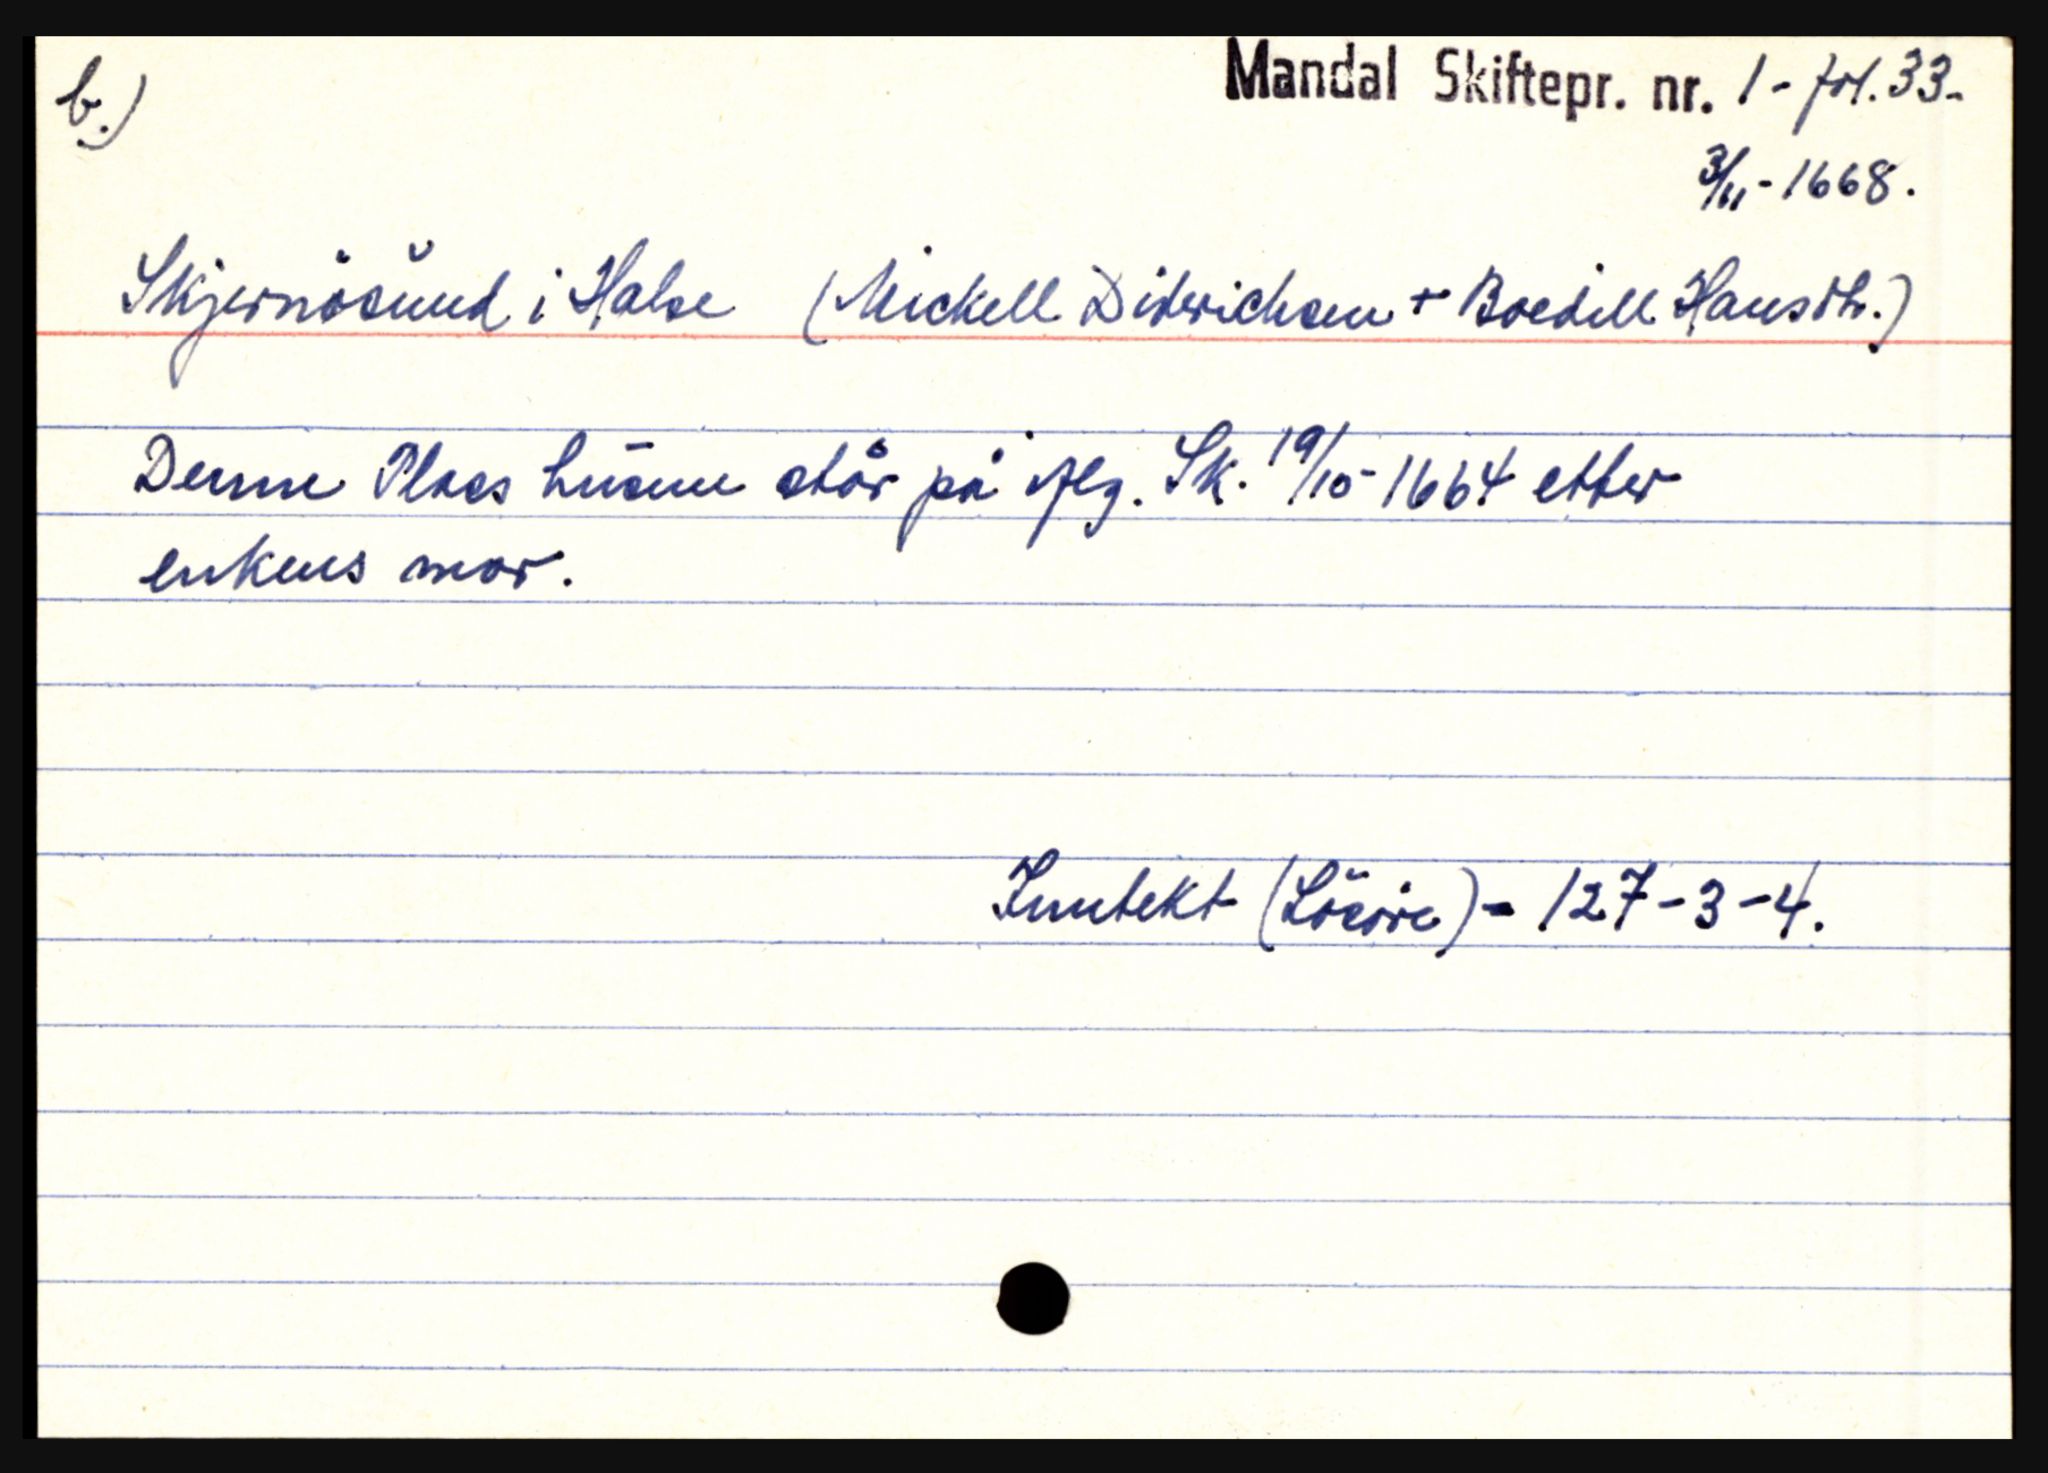 b.)
Mandal Skiftepr. nr. 1 - fol. 33.
3/11 - 1668.
Skjernösund i Halse (Mickell Didrichsen + Boedill Hansdtr.)
Denne Plass husene står på iflg. Sk. 19/10 - 1664 etter
enkens mor.
Inntekt (Lösöre) - 127 - 3 - 4.